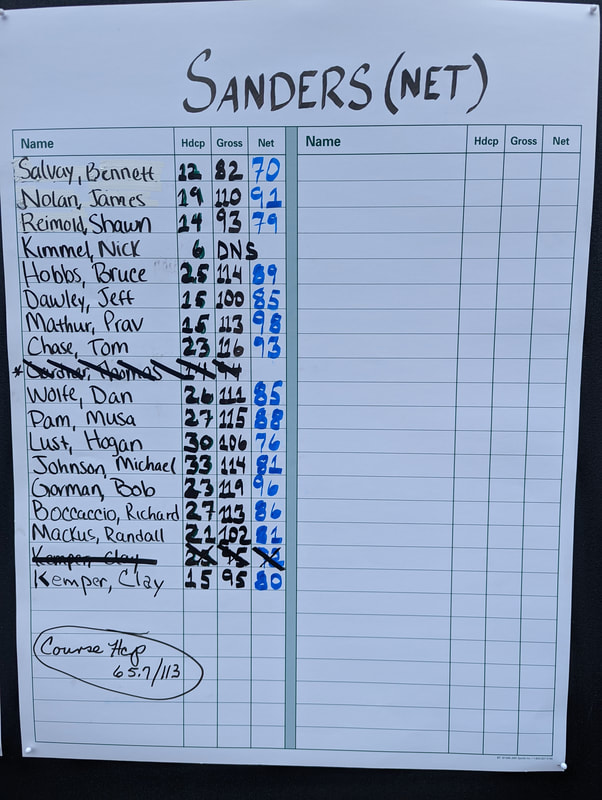 SANDERS (NET)
Name Hdcp Gross Net Name Hdcp Gross Net
Salvay, Bennett 12 82 70
Nolan, James 19 110 91
Reimold, Shawn 14 93 79
Kimmel, Nick 6 DNS
Hobbs, Bruce 25 114 89
Dawley, Jeff 15 100 85
Mathur, Prav 15 113 98
Chase, Tom 23 116 93
* Gardner, Thomas
Wolfe, Dan 26 111 85
Pam, Musa 27 115 88
Lust, Hogan 30 106 76
Johnson, Michael 33 114 81
Gorman, Bob 23 119 96
Boccaccio, Richard 27 113 86
Mackus, Randall 21 102 81
Kemper, Clay
Kemper, Clay 15 95 80
Course Hcp
65.7/113